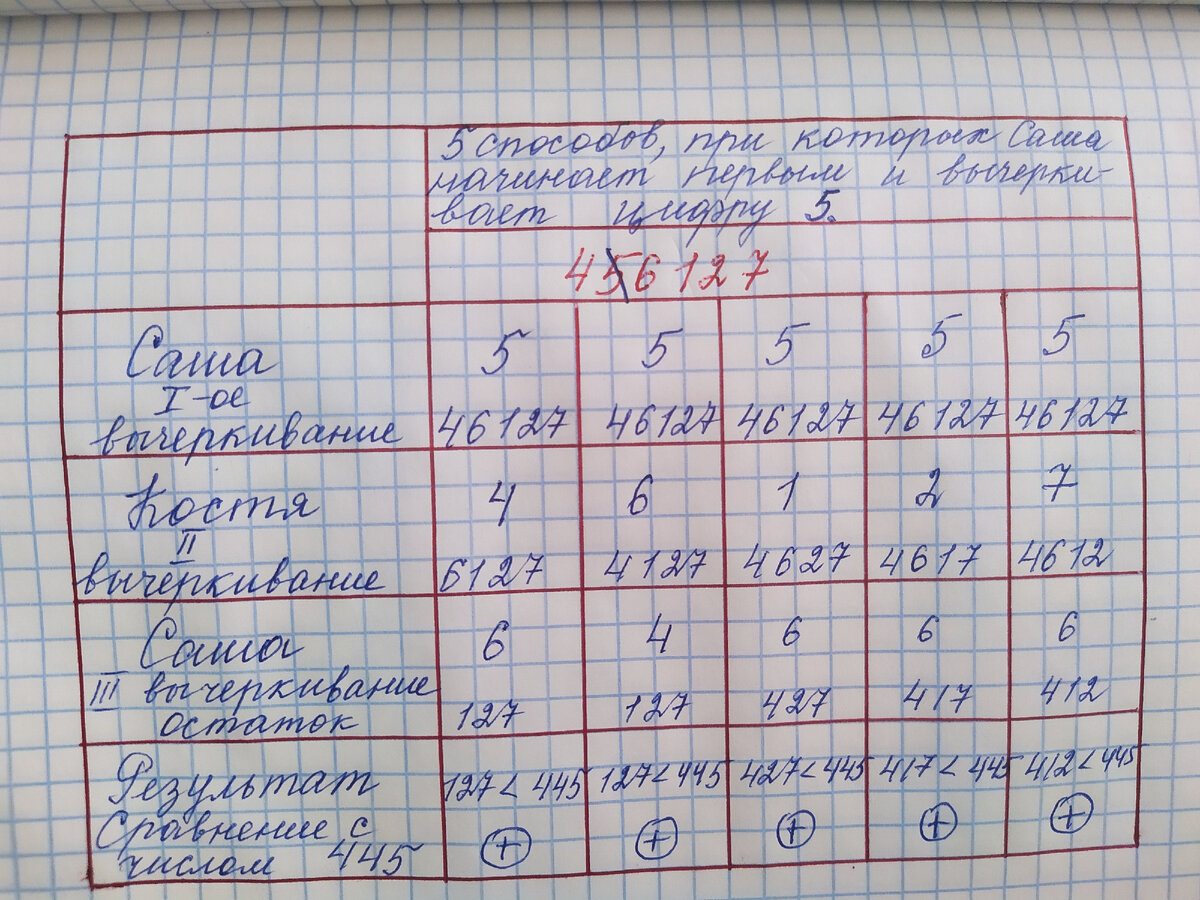 5 способов, при которых Саша
начинает первым и вычерки-
вает цифру 5.
456127
Саша 5 5 5 5 5
I-ое
вычеркивание 46127 46127 46127 46127 46127
Костя 4 6 1 2 7
II
вычёркивание 6127 4127 4627 4617 4612
Саша 6 4 6 6 6
III вычеркивание 127 127 427 417 412
остаток
Результат 127 < 445 127 < 445 427 < 445 417 < 445 412 < 445
Сравнение с + + + + +
числом 445